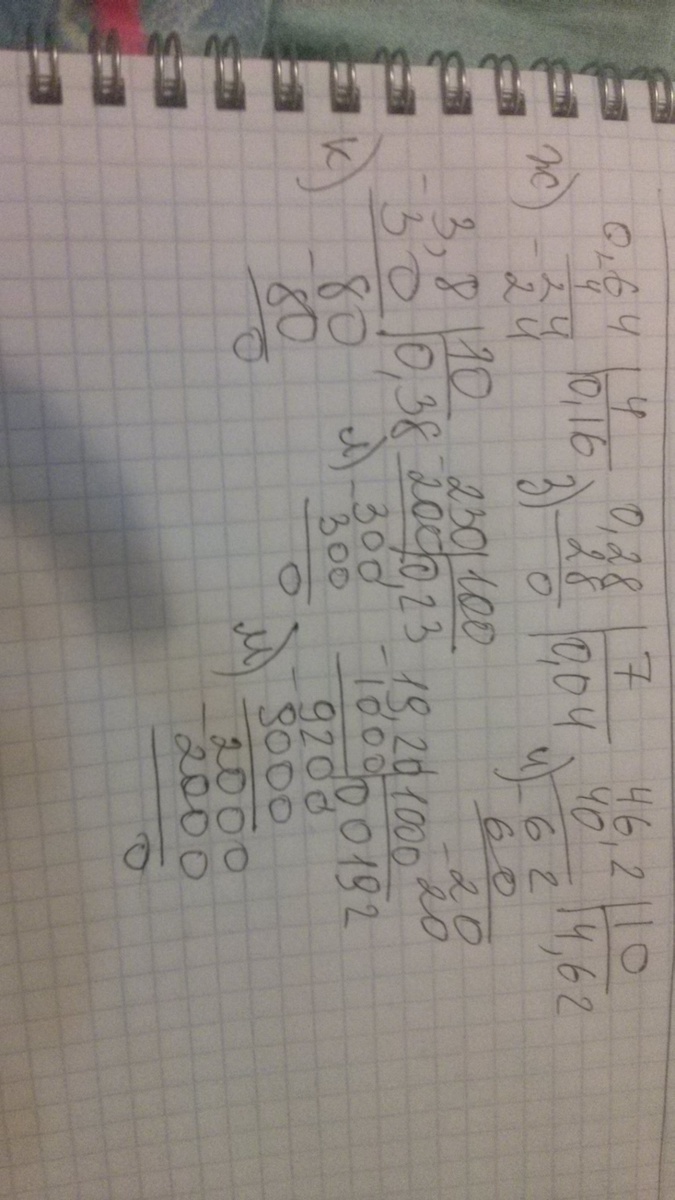 ж) 0,64 | 4
- 4 | 0,16
- 24
24
з) 0,28 | 7
28 | 0,04
0
и) 46,2 | 10
40 | 4,62
- 62
60
- 20
20
к) - 3,8 | 10
30 | 0,38
- 80
80
0
л) - 230 | 100
200 | 0,23
- 300
300
0
м) - 19,20 | 1000
1000 | 00192
- 9200
9000
- 2000
2000
0